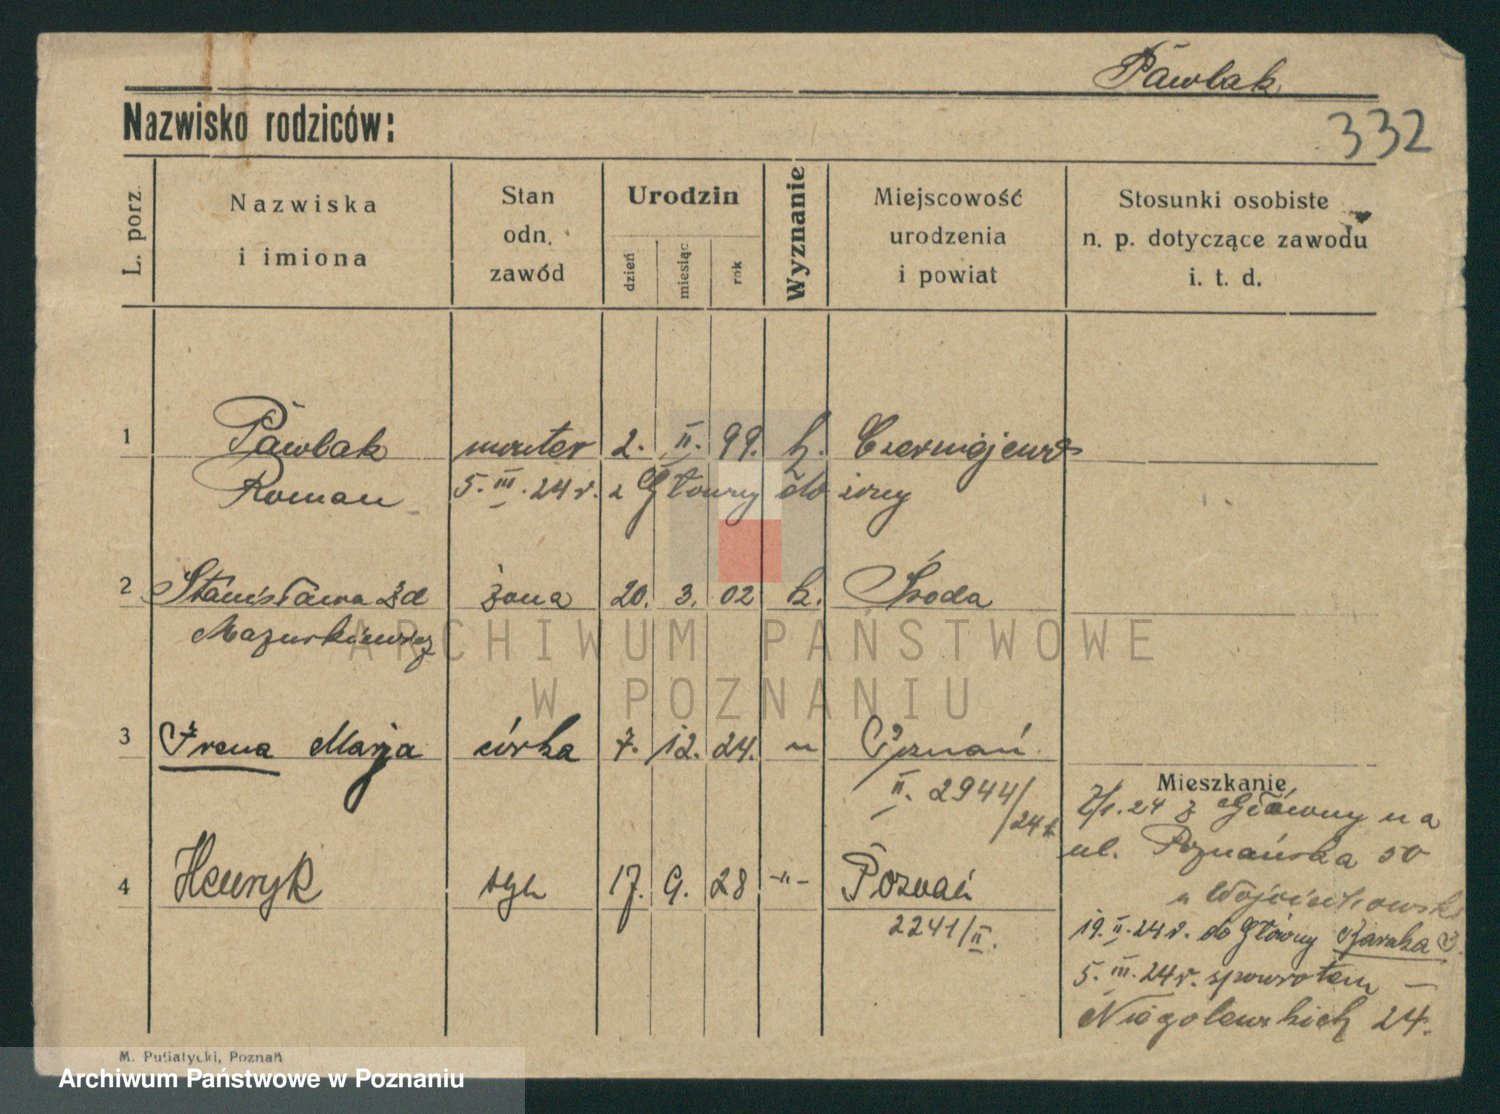 Pawlak
Nazwisko rodziców:
332
L. porz.
Nazwiska
i imiona
Stan
odn.
zawód
Urodzin
dzień
miesiąc
rok
Wyznanie
Miejscowość
urodzenia
i powiat
Stosunki osobiste
n. p. dotyczące zawodu
i. t. d.
1 Pawlak monter 2. II. 99. k. Czerniejewo
Roman 5. III. 24 r. z Główny do żony
2 Stanisława zd żona 20. 3. 02 k. Środa
Mazurkiewicz
ARCHIWUM PAŃSTWOWE
W POZNANIU
3 Irena Marja córka 7. 12. 24. " Poznań
II. 2944/
24
Mieszkanie
24 z Główny na
ul. Poznańska 50
4 Henryk syn 17. 9. 28 -"- Poznań
2241/II.
19. II. 24 r. do Główny
5. III. 24 r. spowrotem –
Niegolewskich 24.
M. Putiatycki, Poznań
Archiwum Państwowe w Poznaniu